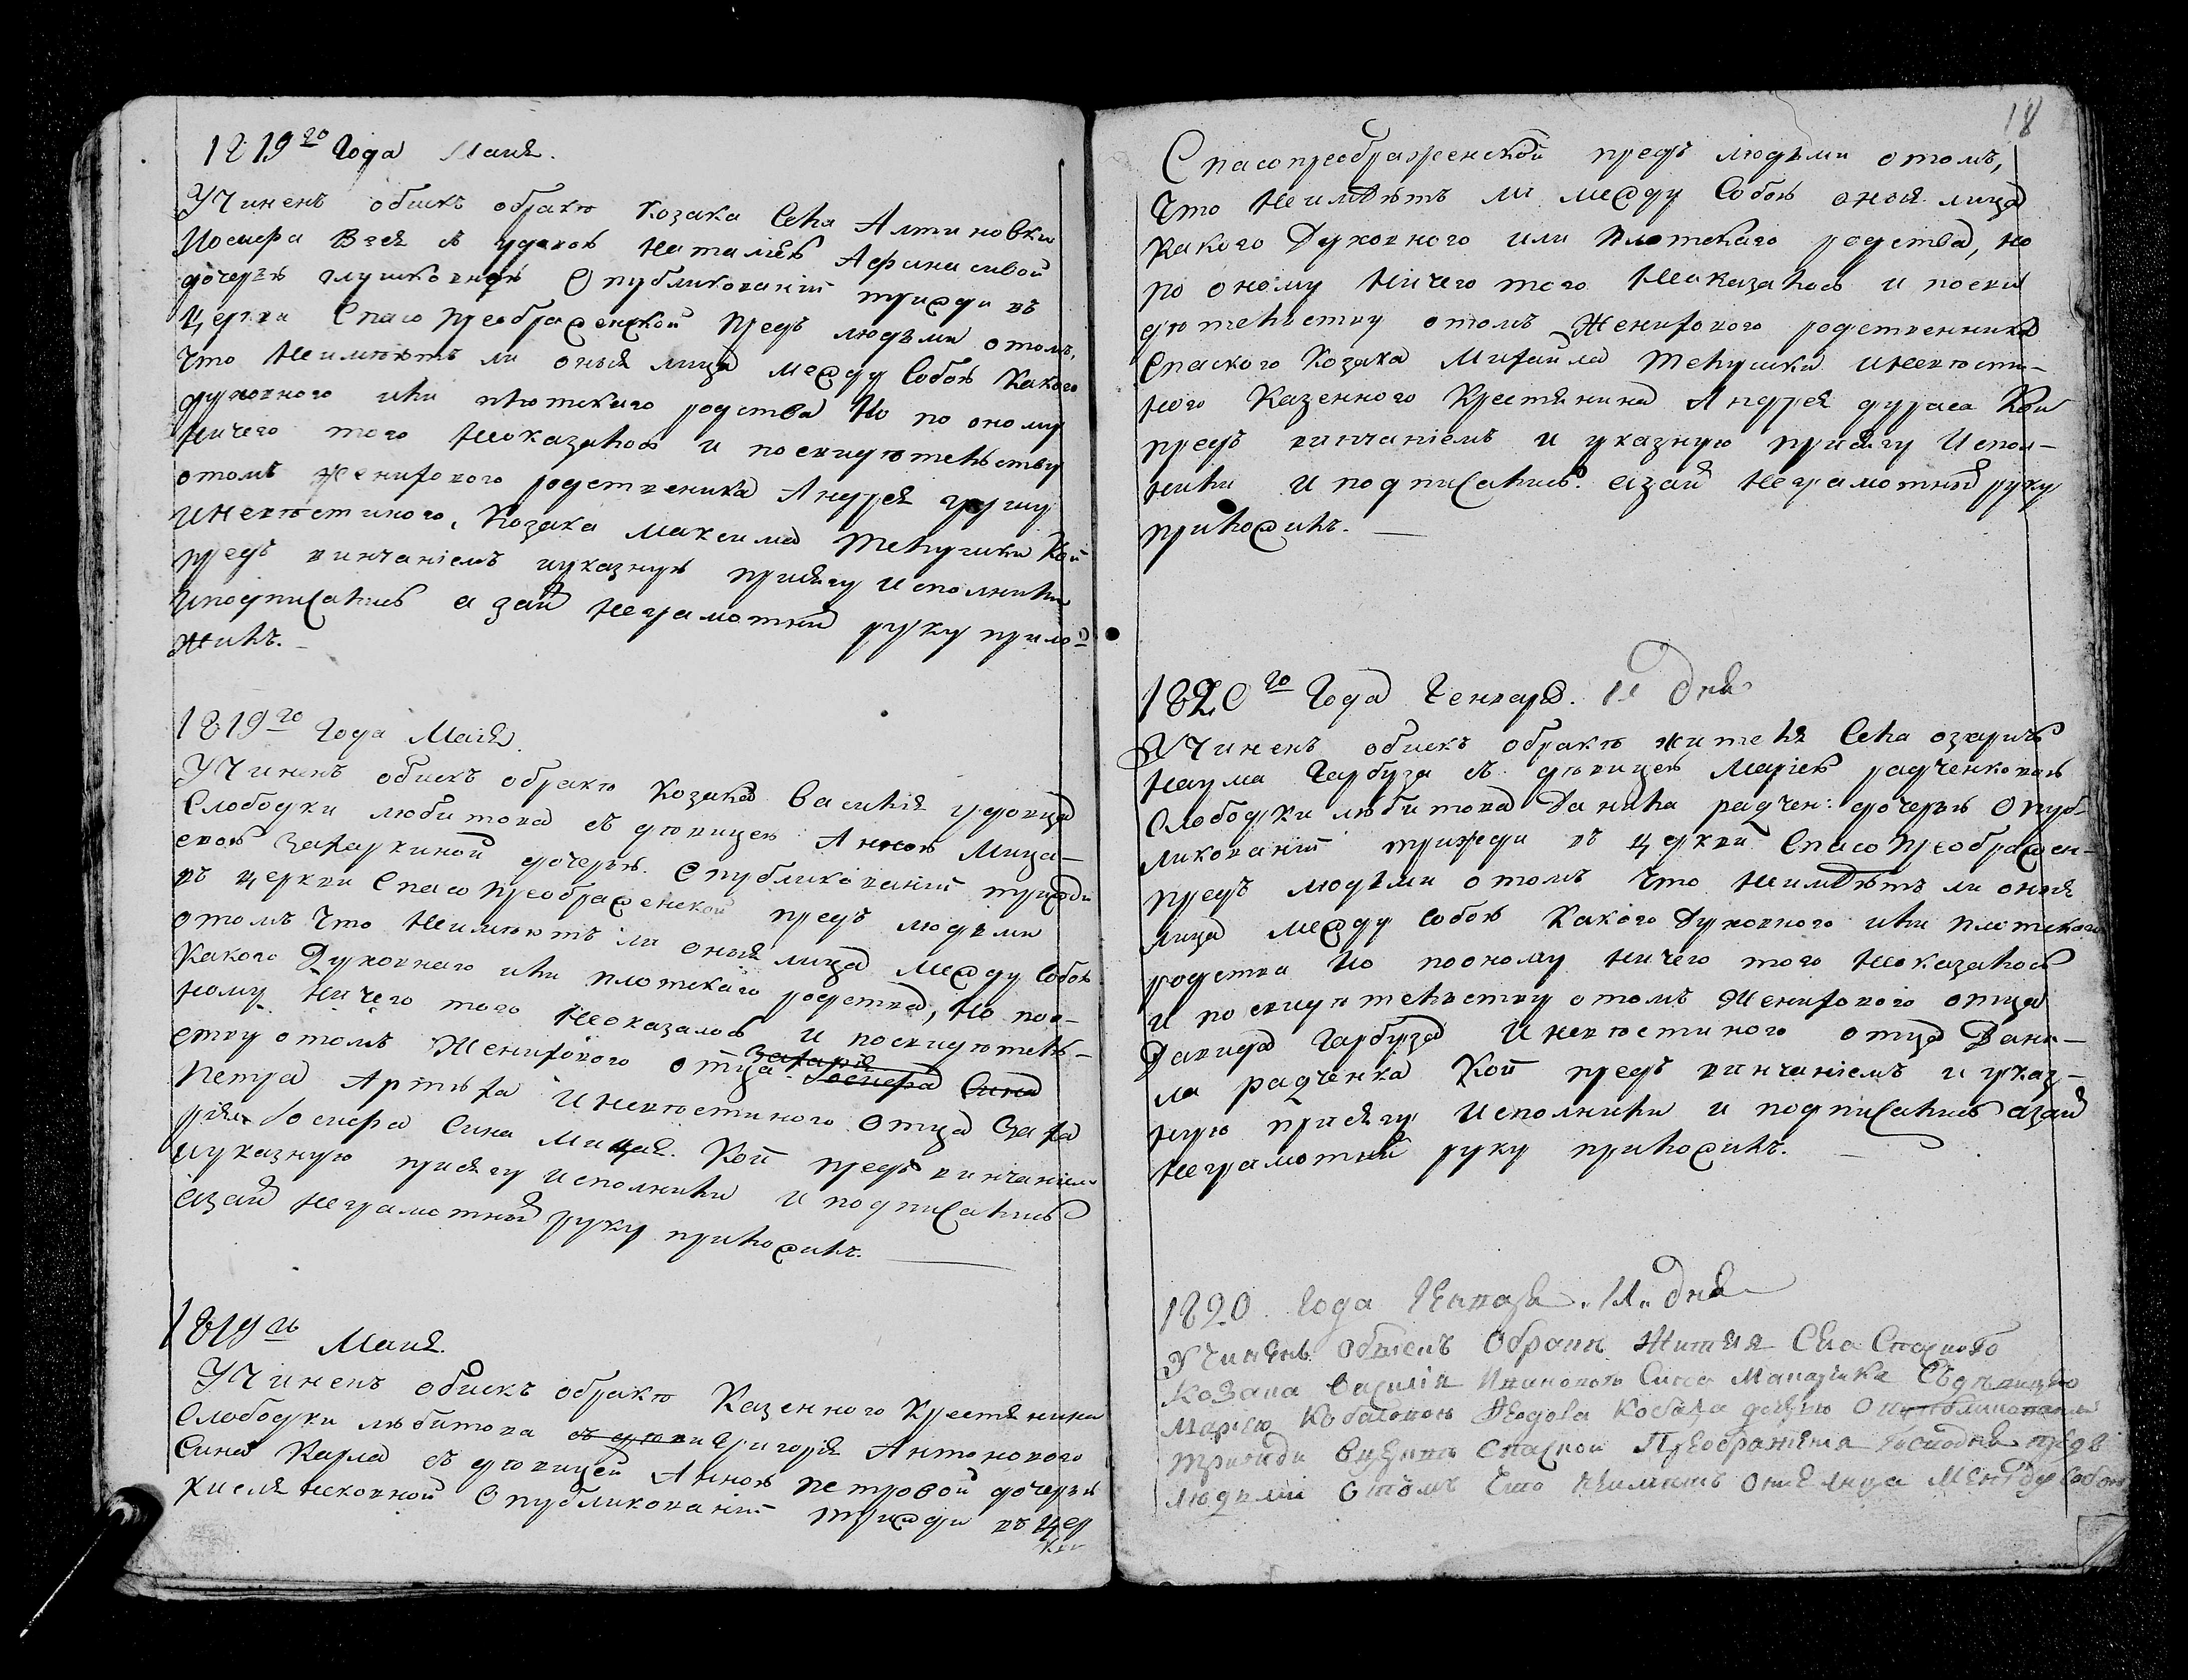 1819го Года Маия.
Учиненъ обискъ обрако козака Села Алтиновки
Иосифа с удовою Наталиею Афанасиевой
дочерью опубликованіи трижди въ
церкви Спасо преображенской предъ людьми отомъ,
что неимеютъ ли оныя лица между собою какого
духовного или плотскаго родства Но по оному
ничего того неоказалось и посвидетельству
отомъ женихового родственика Андрея
иневестиного, козака максима Телушки Кои
предъ винчаніемъ иуказную присягу исполнили
иподписались а заи неграмотныи руку прило
жилъ.
1819го Года Маия.
Учиненъ обискъ обрако козака василия удовца
Слободки любитова съ девицею Анною Мица-
евою Захаркиной дочерью. Опубликованіи трижди
въ церкви Спасо преображенской предъ людьми
отомъ что неимеютъ ли оныя лица между собою
какого Духовнаго или плотскаго родства, но поо-
ному ничего того неоказалось и посвидетель-
ству отомъ Женихового отца Захарія Иосифа Сина
Петра Артюха иневестиного отца Заха
рия Иосифа Сина Мицая. Кои предъ винчаніемъ
иуказную присягу исполнили и подписались
азаи неграмотныи руку приложилъ.
1819го Маия.
Учиненъ обискъ обрако Казенного Крестянина
Слободки любитова съ деви Григория Антонового
Сина Карпа съ девицеи Анною петровой дочерью
Опубликованіи трижди въ цер
кви
18
Спасопреображенской предъ людьми отомъ,
что неимеютъ ли между Собою оныя лица
какого Духовного или плотскаго родства, но
по оному ничего того неоказалось и посви
детельству отомъ Женихового родственника
Спаского Козака Михаила Телушки иневести-
ного Казенного Крестянина Андрея Кои
предъ винчаніемъ и указную присягу Испол-
нили и подписались. азаи неграмотныи руку
приложилъ.
1820го Года Генваря. 11 дня
Учиненъ обискъ обрако жителя Села озаричъ
наума Гарбуза съ девицею Маріею радченковою
Слободки любитова Данила радчен: дочерью опуб-
ликованіи трижди въ церкви Спасо преображен-
предъ людьми отомъ что неимеютъ ли оныя
лица между собою какого Духовного или плотского
родства Но пооному ничего того неоказалось
и посвидетельству отомъ женихового отца
Давида Гарбуза иневестиного отца Дани-
ла радченка Кои предъ винчаніемъ и указ-
ную присягу исполнили и подписались азаи
неграмотныи руку приложилъ.
1820 Года Генваря. 11. дня
Учиненъ Обискъ Обраки Жителя Села Спаского
Козака Василія Иванового Сина съ девицею
Марією Кобазовою Кобаза дочерю Опубликованіи
трижди вцеркви Спаской Преображения Господня предъ
людьми отомъ что неимеютъ ония лица Между Собою